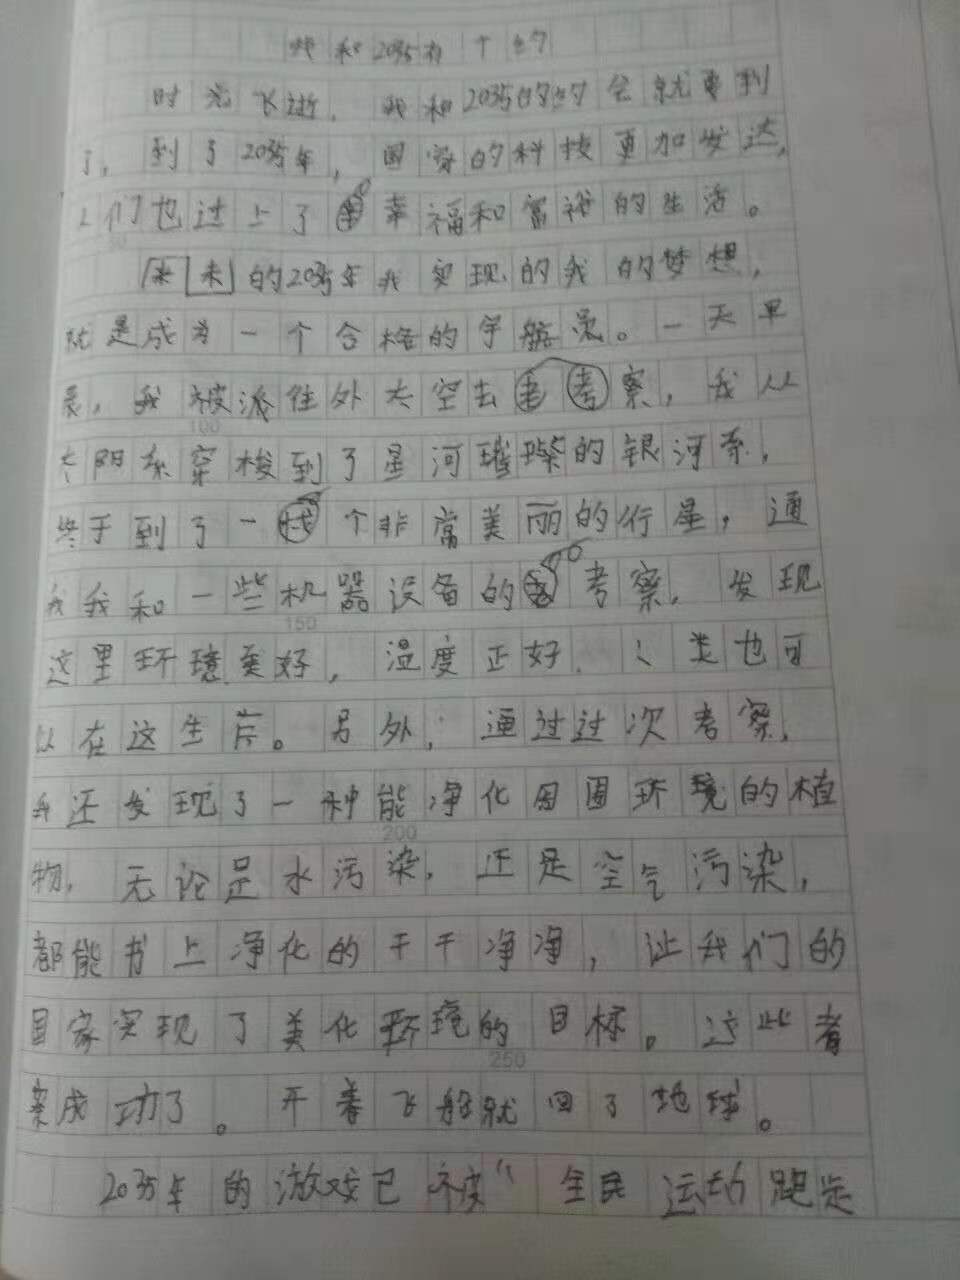 我和2035有个约
时光飞逝，我和2035的约会就要到
了，到了2035年，国家的科技更加发达，
人们也过上了幸福和富裕的生活。
未来的2035年我实现的我的梦想，
就是成为一个合格的宇航员。一天早
晨，我被派往外太空去考察，我从
太阳系穿梭到了星河璀璨的银河系，
终于到了一个非常美丽的行星，通
我我和一些机器设备的考察，发现
这里环境美好，温度正好，人类也可
以在这生存。另外，通过过次考察，
我还发现了一种能净化周围环境的植
物，无论是水污染，还是空气污染，
都能书上净化的干干净净，让我们的
国家实现了美化环境的目标。这些考
察成功了。开着飞船就回了地球。
2035年的游戏已被“全民运动跑步
100
150
200
250